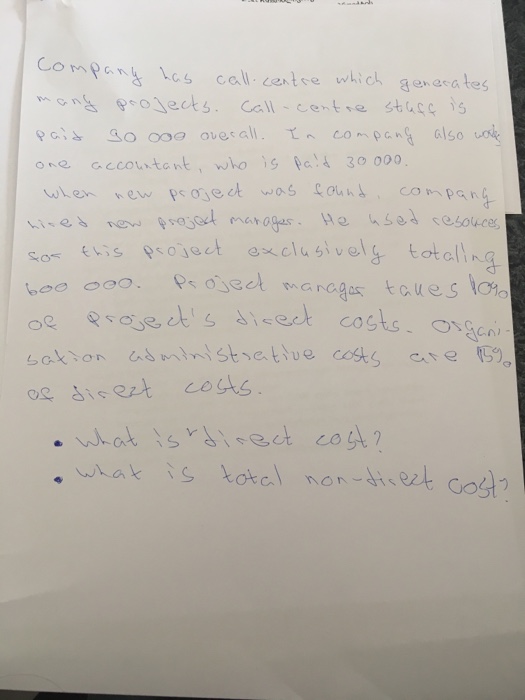 Company has call-centre which generates
many projects. Call-centre staff is
paid 90 000 overall. In company also work
one accountant, who is paid 30 000.
When new project was found, company
hired new project manager. He used resources
for this project exclusively totalling
600 000. Project manager takes 10%
of project's direct costs. Organi-
sation administrative costs are 15%
of direct costs.
• What is direct cost?
• What is total non-direct cost?